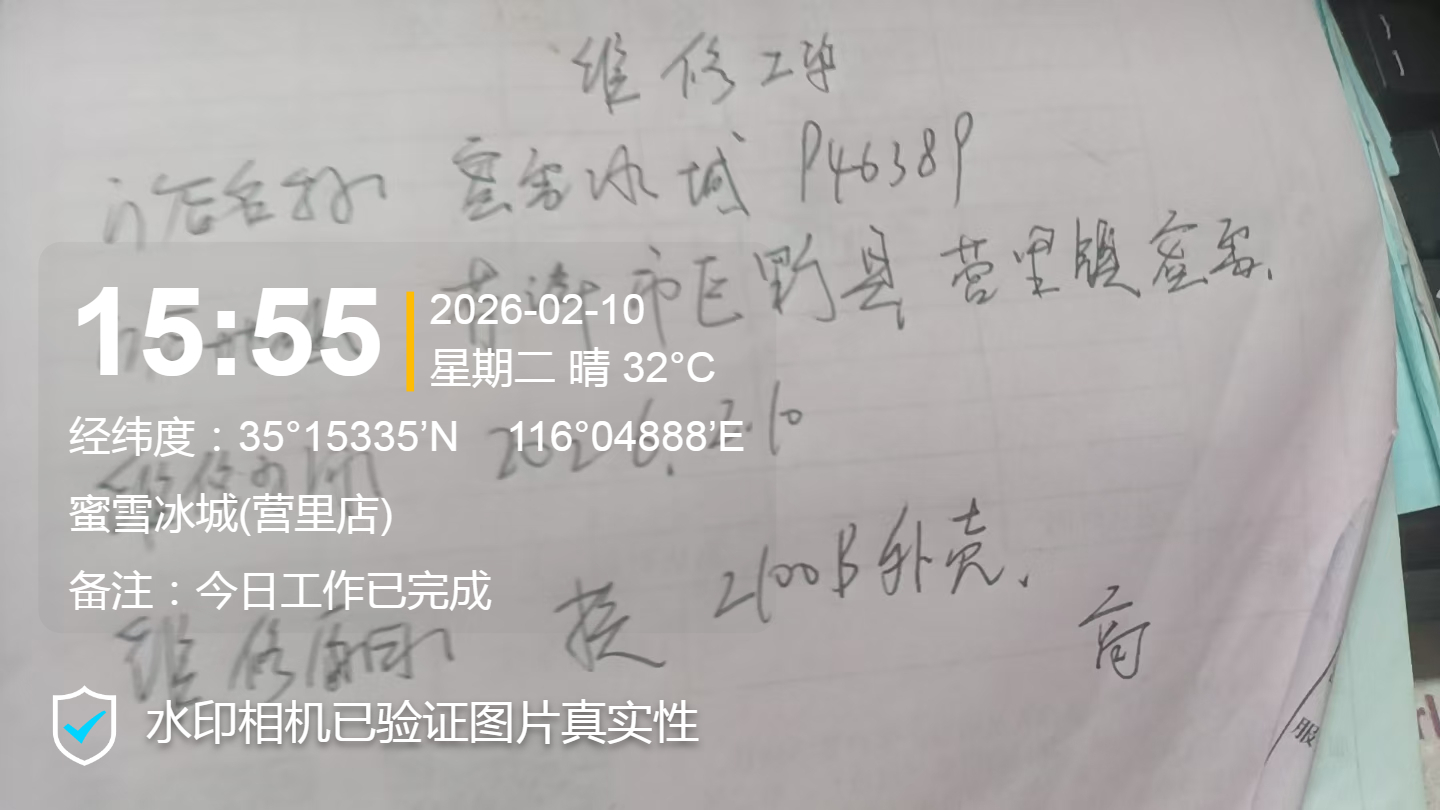 维修工单
门店名称 蜜雪冰城 P4638P
门店地址 菏泽市巨野县营里镇蜜雪.
15:55
2026-02-10
星期二 晴 32°C
经纬度：35°15335’N 116°04888’E
维修时间 2026.2.10
蜜雪冰城(营里店)
备注：今日工作已完成
维修 换 2100B外壳.
水印相机已验证图片真实性
服